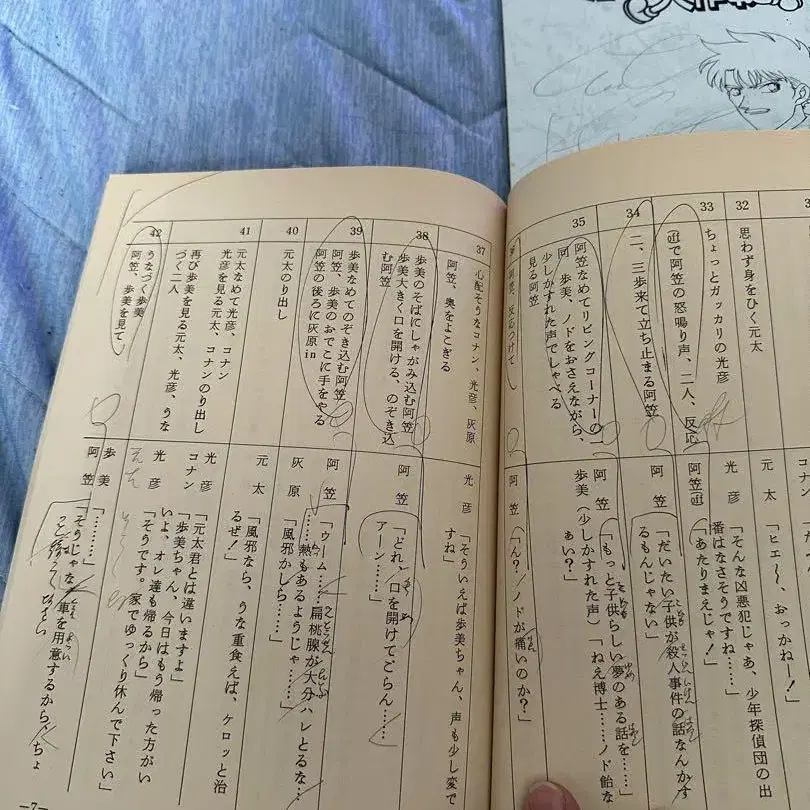 32
思わず身をひく元太
ちょっとガッカリの光彦
33
offで阿笠の怒鳴り声、二人、反応
34
二、三歩来て立ち止まる阿笠
35
阿笠なめてリビングコーナーの
歩美、ノドをおさえながら、
少しかすれた声でしゃべる
見る阿笠
コナン
元太「ヒエ〜、おっかねー!」
光彦「そんな凶悪犯じゃあ、少年探偵団の出
番はなさそうですね……」
阿笠off「あたりまえじゃ!」
阿笠「だいたい子供が殺人事件の話なんかす
るもんじゃない」
阿笠「もっと子供らしい夢のある話を……」
歩美(少しかすれた声)「ねえ博士……ノド飴な
ぁい?」
阿笠「ん?ノドが痛いのか?」
37
心配そうなコナン、光彦、灰原
阿笠、奥をよこぎる
38
歩美のそばにしゃがみ込む阿笠
歩美大きく口を開ける、のぞき込
む阿笠
39
歩美なめてのぞき込む阿笠
阿笠、歩美のおでこに手をやる
阿笠の後ろに灰原in
40
元太のり出し
41
元太なめて光彦、コナン
光彦を見る元太、コナンのり出し
再び歩美を見る元太、光彦、うな
づく二人
42
うなづく歩美
阿笠、歩美を見て
光彦「そういえば歩美ちゃん、声も少し変で
すね」
阿笠「どれ、口を開けてごらん……
アーン……」
阿笠「ウーム……扁桃腺が大分ハレとるな…
……熱もあるようじゃ……」
灰原「風邪かしら……」
元太「風邪なら、うな重食えば、ケロッと治
るぜ!」
光彦「元太君とは違いますよ」
コナン「歩美ちゃん、今日はもう帰った方がい
いよ、オレ達も帰るから」
光彦「そうです。家でゆっくり休んで下さい」
歩美「………」
阿笠「そうじゃな、車を用意するから、ちょ
—7—